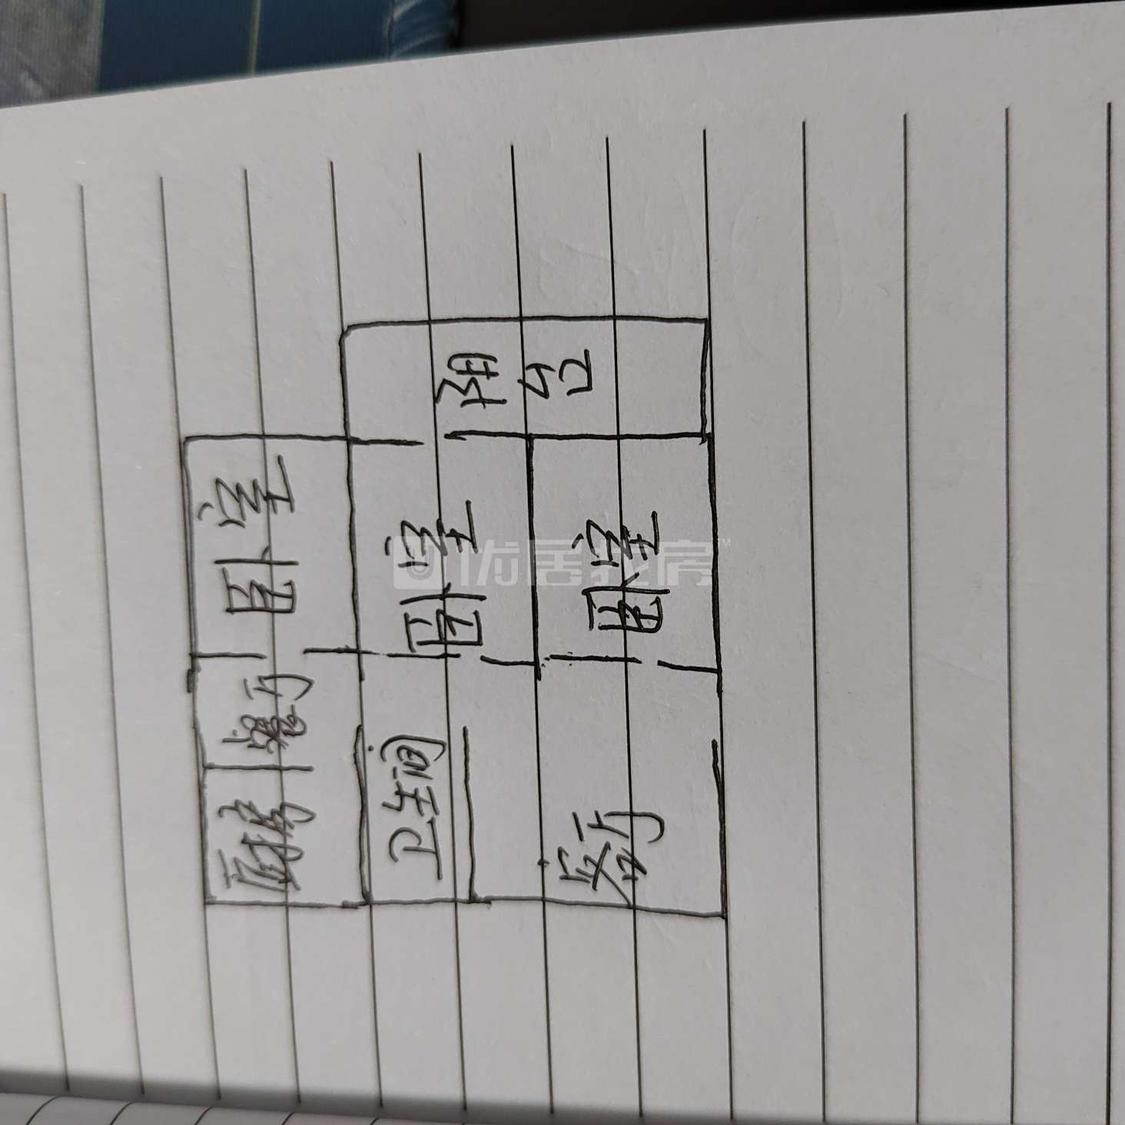 卧室
餐厅
厨房
阳台
卧室
卧室
卫生间
客厅
优居找房